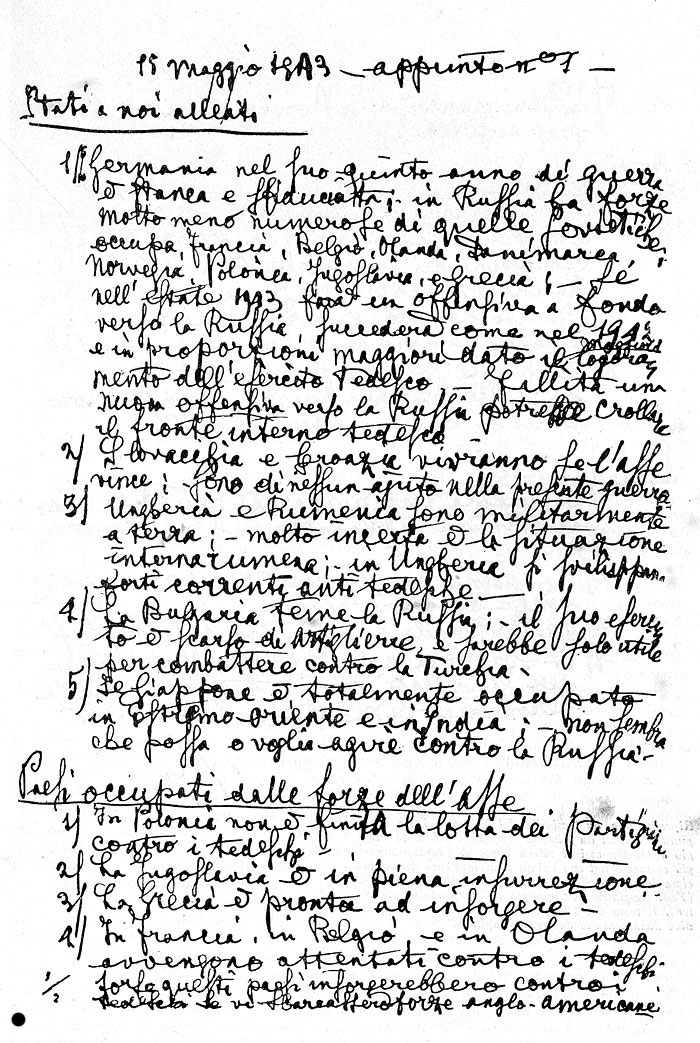 15 maggio 1943 - appunto n° 1 -
Stati a noi alleati
1) Germania nel suo quinto anno di guerra
è stanca e sfiduciata; - in Russia ha forze
molto meno numerose di quelle sovietiche;
occupa, Francia, Belgio, Olanda, Danimarca,
Norvegia, Polonia, Jugoslavia, e Grecia; - Se
nell'estate 1943 farà un offensiva a fondo
verso la Russia, succederà come nel
e in proporzioni maggiori dato il maggiore logora-
mento dell'esercito tedesco - Fallita una
nuova offensiva verso la Russia potrebbe crollare
il fronte interno tedesco -
2) Slovacchia e Croazia vivranno se l'asse
vince; sono di nessun aiuto nella presente guerra.
3) Ungheria e Rumenia sono militarmente
a terra; - molto incerta è la situazione
interna rumena; - in Ungheria si sviluppan-
forti correnti anti tedesche -
4) La Bulgaria teme la Russia; - il suo eserci-
to è scarso di artiglierie, e sarebbe solo utile
per combattere contro la Turchia.
5) Il Giappone è totalmente occupato
in estremo oriente e in India; - non sembra
che possa o voglia agire contro la Russia -
Paesi occupati dalle forze dell'Asse
1) In Polonia non è finita la lotta dei partigiani
contro i tedeschi -
2) La Jugoslavia è in piena insurrezione.
3) La Grecia è pronta ad insorgere -
4) In Francia, in Belgio e in Olanda
avvengono attentati contro i tedeschi.
forse questi paesi insorgerebbero contro i
tedeschi se vi sbarcassero forze anglo-americane
1/2